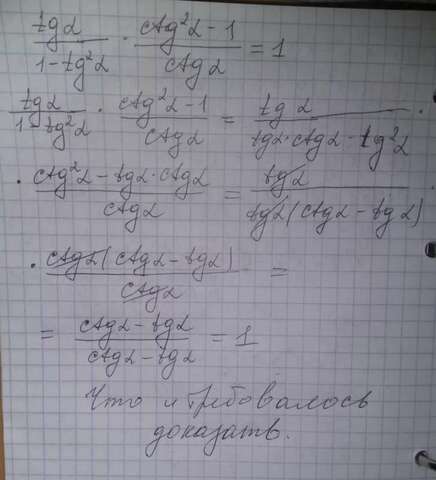 tgα/(1-tg²α) · (ctg²α-1)/ctgα = 1
tgα/(1-tg²α) · (ctg²α-1)/ctgα = tgα/(tgα·ctgα-tg²α) ·
· (ctg²α-tgα·ctgα)/ctgα = tgα/(tgα(ctgα-tgα)) ·
· ctgα(ctgα-tgα)/ctgα =
= (ctgα-tgα)/(ctgα-tgα) = 1
Что и требовалось
доказать.